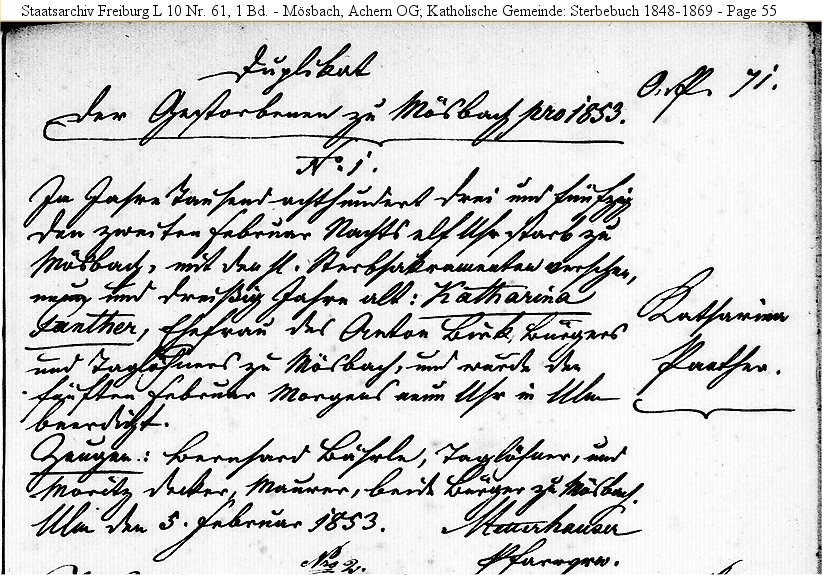 Staatsarchiv Freiburg L 10 Nr. 61, 1 Bd. - Mösbach, Achern OG; Katholische Gemeinde: Sterbebuch 1848-1869 - Page 55
Duplikat
71.
der Gestorbenen zu Mösbach pro 1853.
No. 1.
Im Jahre Tausend achthundert drei und fünfzig
den zweiten Februar Nachts elf Uhr starb zu
Mösbach, mit den hl. Sterbsakramenten versehen,
neun und dreißig Jahre alt: Katharina
Panther, Ehefrau des Anton Birk, Bürgers
und Taglöhners zu Mösbach, und wurde den
fünften Februar Morgens neun Uhr in Ulm
beerdigt.
Katharina
Panther.
Zeugen: Bernhard Bährle, Taglöhner, und
Moritz Decker, Maurer, beide Bürger zu Mösbach.
Ulm den 5. Februar 1853.
Pfarrvrw.
No. 2.